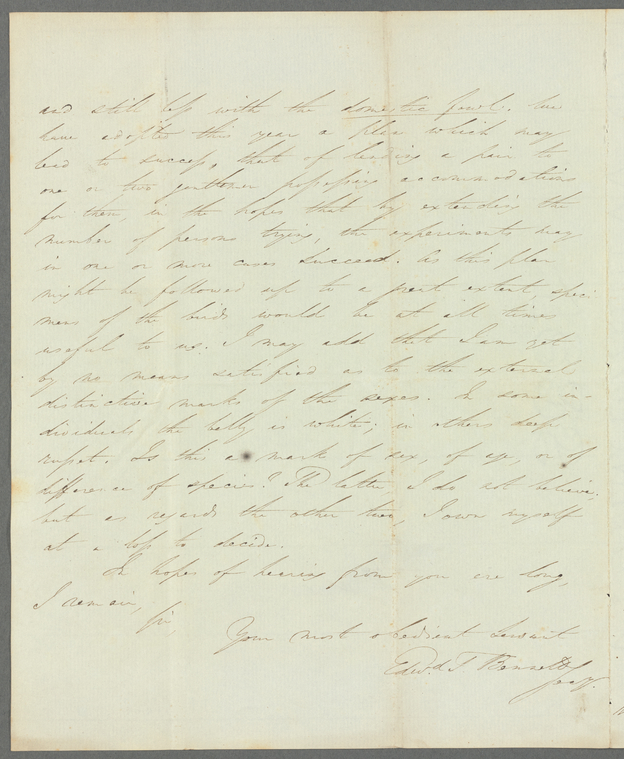 and still less with the domestic fowl. We
have adopted this year a plan which may
lead to success, that of lending a pair to
one or two gentlemen possessing accommodations
for them, in the hopes that by extending the
number of persons trying, the experiments may
in one or more cases succeed. As this plan
might be followed up to a great extent, speci-
mens of the birds would be at all times
useful to us. I may add that I am yet
by no means satisfied as to the external
distinctive marks of the sexes. In some in-
dividuals the belly is white; in others deep
russet. Is this a mark of sex, of age, or of
difference of species? The latter, I do not believe;
but as regards the other two, I own myself
at a loss to decide.
In hopes of hearing from you ere long,
I remain,
Sir,
Your most obedient Servant
Edwd. T. Bennett
Secy.